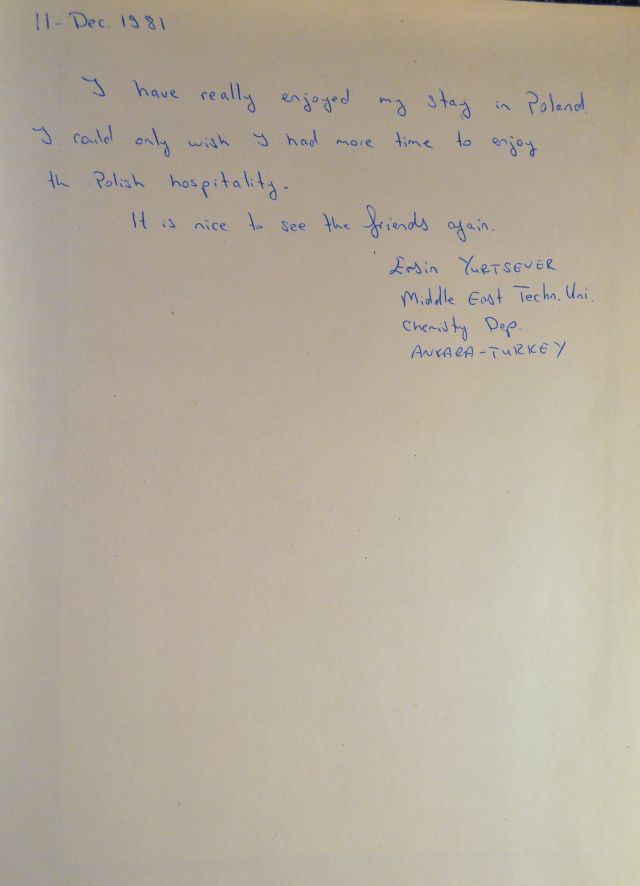 11-Dec. 1981
I have really enjoyed my stay in Poland.
I could only wish I had more time to enjoy
th Polish hospitality.
It is nice to see the friends again.
Ersin YURTSEVER
Middle East Techn. Uni.
Chemisty Dep.
ANKARA-TURKEY